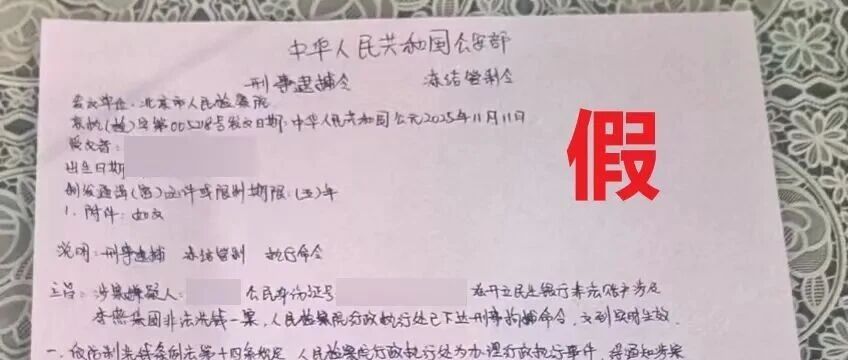 中华人民共和国公安部
刑事逮捕令 冻结管制令
发文单位:北京市人民检察院
京执(检)字第005218号发文日期:中华人民共和国公元2025年11月11日
受文者:
出生日期
制发通缉(密)文件或限制期限:(五)年
1.附件:如文
假
说明:刑事逮捕 冻结管制 执行命令
主旨:涉案嫌疑人: 公民身份证号 在开立民生银行非法账户涉及
李燕集团非法洗钱一案,人民检察院行政执行处已下达刑事拘捕命令,文到实时生效.
一.依防制洗钱条例法第十四条规定,人民检察院行政执行处为办理行政执行事件,得通知涉案